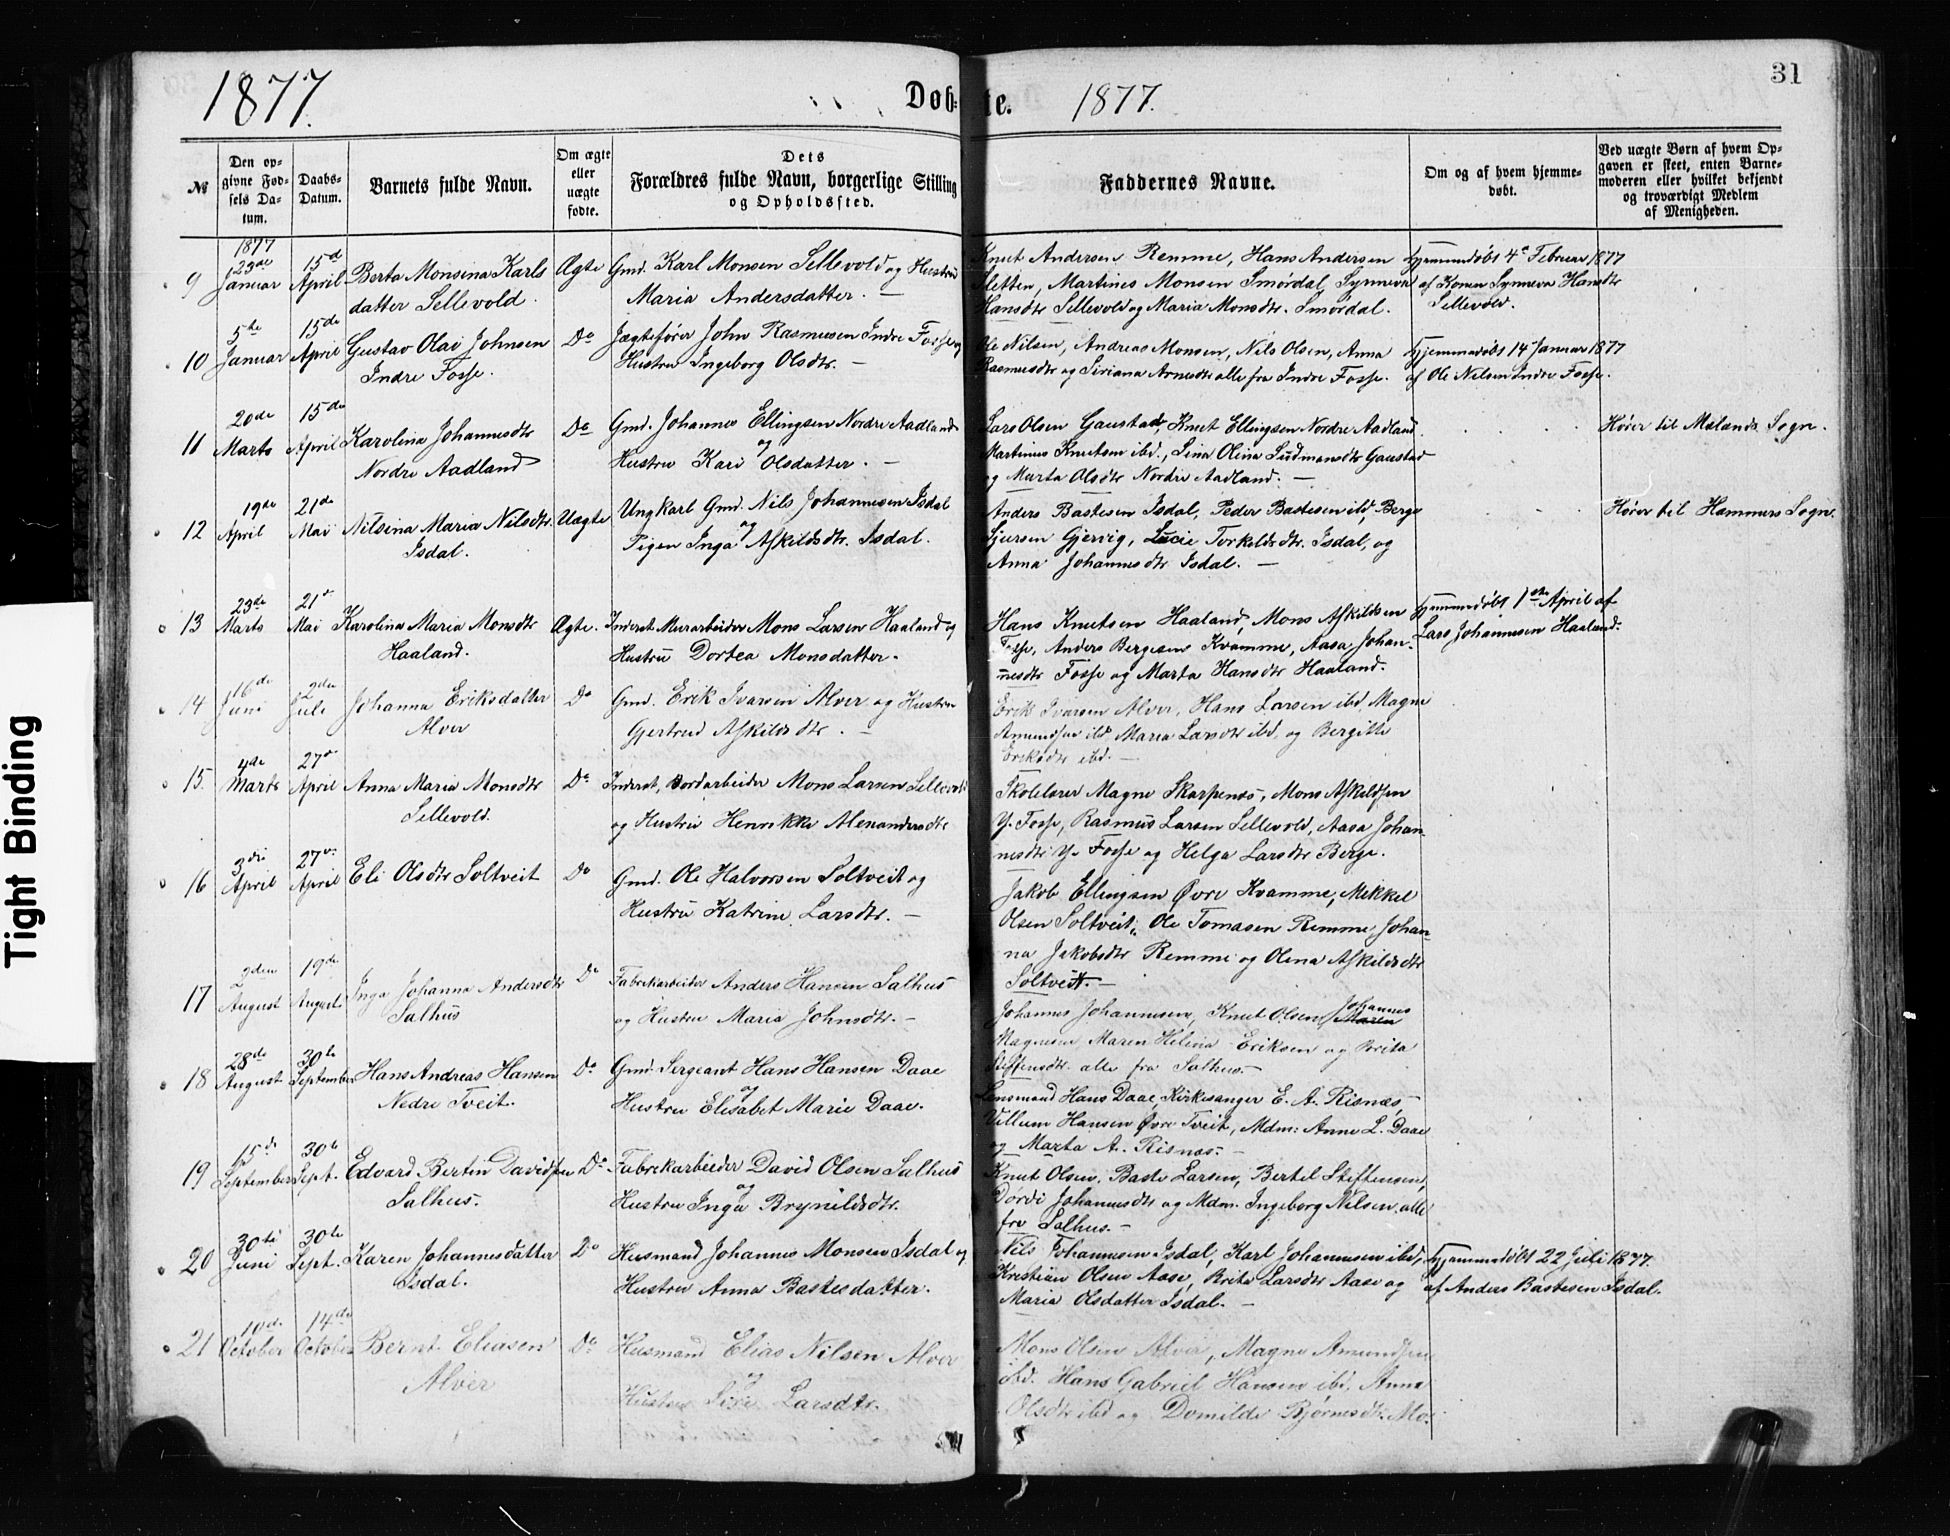 1877.
Døb-
te.
1877.
31
№
Den op-
givne Fød-
sels Da-
tum.
Daabs-
Datum.
Barnets fulde Navn.
Om ægte
eller
uægte
fødte.
Dets
Forældres fulde Navn, borgerlige Stilling
og Opholdssted.
Faddernes Navne.
Om og af hvem hjemme-
døbt.
Ved uægte Børn af hvem Op-
gaven er skeet, enten Barne-
moderen eller hvilket bekjendt
og troværdigt Medlem
af Menigheden.
1877
9
23de Januar
15de April
Berta Monsina Karls
datter Sellevold.
Ægte
Gmd. Karl Monsen Sellevold og Hustru
Maria Andersdatter. —
Knut Andersen Remme, Hans Andersen
Sletten, Martines Monsen Smørdal, Synneva
Hansdtr Sellevold og Maria Monsdtr. Smørdal.
Hjemmedøbt 4de Februar 1877
af Konen Synneva Hansdtr
Sellevold.
10
5de Januar
15de April
Gustav Olai Johnsen
Indre Fosse.
Do
Jægtefører John Rasmusen Indre Fosse og
Hustru Ingeborg Olsdtr. —
Ole Nilsen, Andreas Monsen, Nils Olsen, Anna
Rasmusdtr og Siriana Arnesdtr alle fra Indre Fosse.
Hjemmedøbt 14 Januar 1877
af Ole Nilsen Indre Fosse.
11
20de Marts
15de April
Karolina Johannesdtr
Nordre Aadland
Do
Gmd. Johannes Ellingsen Nordre Aadland
og
Hustru Kari Olsdatter. —
Lars Olsen Gaustad, Knut Ellingsen Nordre Aadland
Martinus Knutsen ibd., Lina Olina Gudmunsdtr Gaustad
og Marta Olsdtr Nordre Aadland. —
Hører til Mælands Sogn.
12
19de April
21de Mai
Nilsina Maria Nilsdtr.
Isdal.
Uægte
Ungkarl Gmd. Nils Johannesen Isdal
og
Pigen Inga Askildsdtr. Isdal.
Anders Bastesen Isdal, Peder Bastesen ibd, Berge
Sjursen Gjervig, Lucie Torkeldsdtr. Isdal, og
Anna Johannesdtr Isdal. —
Hører til Hammers Sogn.
13
23de Marts
21de Mai
Karolina Maria Monsdtr
Haaland.
Ægte.
Inderst Murarbeider Mons Larsen Haaland og
Hustru Dortea Monsdatter.
Hans Knutsen Haaland, Mons Askildsen
Fosse, Anders Bergesen Kvamme, Aasa Johan-
nesdtr Fosse og Marta Hansdtr Haaland.
Hjemmedøbt 1ste April af
Lars Johannesen Haaland.
14
16de Juni
2den Juli
Johanna Eriksdatter
Alver
Do
Gmd. Erik Ivarsen Alver og Hustru
Gjertrud Askildsdtr. —
Erik Ivarsen Alver, Hans Larsen ibd, Magne
Amundsen ibd Maria Larsdtr ibd, og Bergitte
Eriksdtr ibd. —
15.
4de Marts
27de April
Anna Maria Monsdtr
Sellevold.
Do
Inderst, Bordarbeider Mons Larsen Sellevold
og Hustru Henrikke Alexandersdtr
Skolelærer Magne Skarpenæs, Mons Askildsen
Y. Fosse, Rasmus Larsen Sellevold, Aasa Johan-
nesdtr Y. Fosse og Helga Larsdtr Berge.
16
3die April
27de April
Eli Olsdtr Soltveit
Do
Gmd. Ole Halvorsen Soltveit og
Hustru Katrine Larsdtr. —
Jakob Ellingsen Øvre Kvamme, Mikkel
Olsen Soltveit, Ole Tomasen Remme, Johan-
na Jakobsdtr Remme og Olina Askildsdtr
Soltveit. —
17
2den August
19de August
Inga Johanna Andersdtr
Salhus
Do
Fabrikarbeider Anders Hansen Salhus
og Hustru Maria Johnsdtr. —
Johannes Johannesen, Knut Olsen, Johannes
Magnesen Maren Helena Eriksen og Brita
Steffensdtr. alle fra Salhus. —
18
28de August
30te September
Hans Andreas Hansen
Nedre Tveit.
Do
Gmd. Sergeant Hans Hansen Daae
og
Hustru Elisabet Marie Daae.
Lensmand Hans Daae, Kirkesanger E. A. Risnæs,
Villum Hansen Øvre Tveit, Mdm: Anne L. Daae
og Marta A. Risnæs. —
19
15de September
30te Sept.
Edvard Bertin Davidsen
Salhus.
Do
Fabrikarbeider David Olsen Salhus
og
Hustru Inga Brynildsdtr.
Knut Olsen, Baste Larsen, Bertel Steffensen,
Dordi Johannesdtr og Mdm. Ingeborg Nilsen, alle
fra Salhus. —
20
30te Juni
30te Sept.
Karen Johannesdatter
Isdal.
Do
Husmand Johannes Monsen Isdal og
Hustru Anna Bastesdatter.
Nils Johannesen Isdal, Karl Johannesen ibd,
Kristian Olsen Aase, Brita Larsdtr Aase og
Maria Olsdatter Isdal. —
Hjemmedøbt 22 Juli 1877.
af Anders Bastesen Isdal.
21
10de October
14de October
Bernt Eliasen
Alver
Do
Husmand Elias Nilsen Alver
og
Hustru Siri Larsdtr.
Mons Olsen Alver, Magne Amundsen
ibd. Hans Gabriel Hansen ibd, Anna
Olsdtr ibd og Domilde Bjørnesdtr. Mo.
Tight Binding